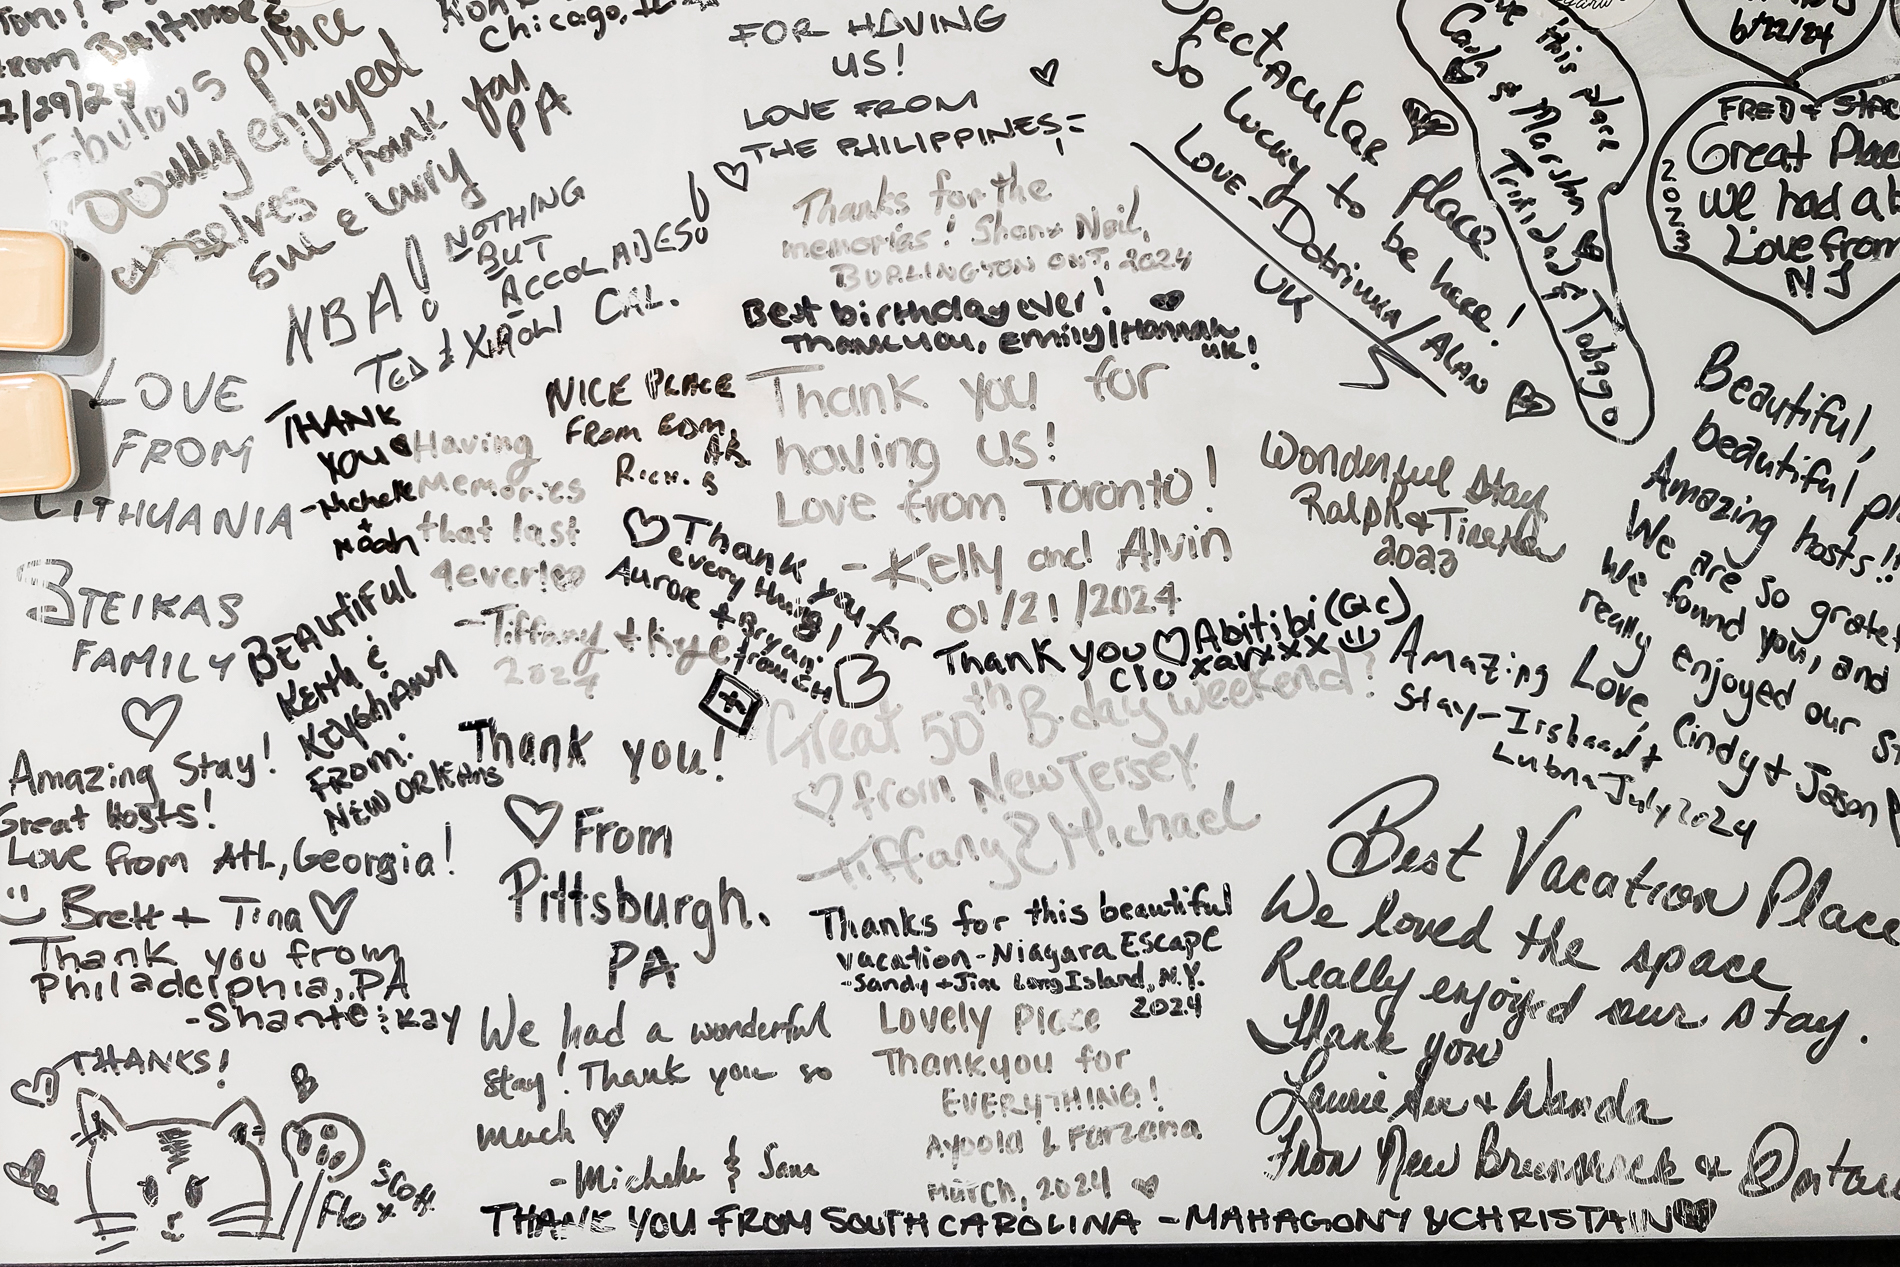 from Baltimore
7/29/24
Fabulous place
Really enjoyed
ourselves Thank you
Sue & Larry PA
Chicago, IL
FOR HAVING
US!
LOVE FROM
THE PHILIPPINES
NBA! NOTHING
BUT
ACCOLADES!
TED & XIAOLI CAL.
Thanks for the
memories! Shan & Neil,
BURLINGTON ONT. 2024
Best birthday ever!
Thank you, Emily/Hannah
UK!
Spectacular place
So lucky to be here!
Love - Dobrinka/Alan
UK
this place
Marsha
Trinidad & Tobago
6/22/24
FRED &
Great Place
we had a
Love from
NJ
2023
LOVE
FROM
LITHUANIA
STEIKAS
FAMILY
THANK
YOU
-Michelle
+
Noah
Having
Memories
that last
4ever!
-Tiffany + Kyle
2024
NICE PLACE
FROM EDM,
AB.
RICK. B
Thank you for
having us!
Love from Toronto!
-Kelly and Alvin
01/21/2024
Thank you for
everything!
Aurore + Bryan
from CH
Wonderful Stay
Ralph &
Beautiful,
beautiful
Amazing hosts!!
We are so
We found you, and
really enjoyed our
Love, Cindy + Jason
BEAUTIFUL
KEITH &
KEYSHAWN
FROM:
NEW ORLEANS
Thank you Abitibi (QC)
Clo xavxxx
Great 50th B-day weekend!
from New Jersey
Tiffany & Michael
Amazing
Stay - Irshaad +
Lubna July 2024
Amazing Stay!
Great hosts!
Love from Atl, Georgia!
Brett + Tina
Thank you!
From
Pittsburgh.
PA
Thank you from
Philadelphia, PA
-Shante & Kay
Thanks for this beautiful
vacation - Niagara Escape
-Sandy + Jim Long Island, N.Y.
2024
Best Vacation Place
We loved the space
Really enjoyed our stay.
Thank you
Laurie Ann + Wanda
From New Brunswick &
We had a wonderful
stay! Thank you so
much
-Michele & Sana
Lovely Place
Thankyou for
EVERYTHING!
& Farzana
March, 2024
THANKS!
Flo x Scott
THANK YOU FROM SOUTH CAROLINA - MAHAGONY & CHRISTAIN